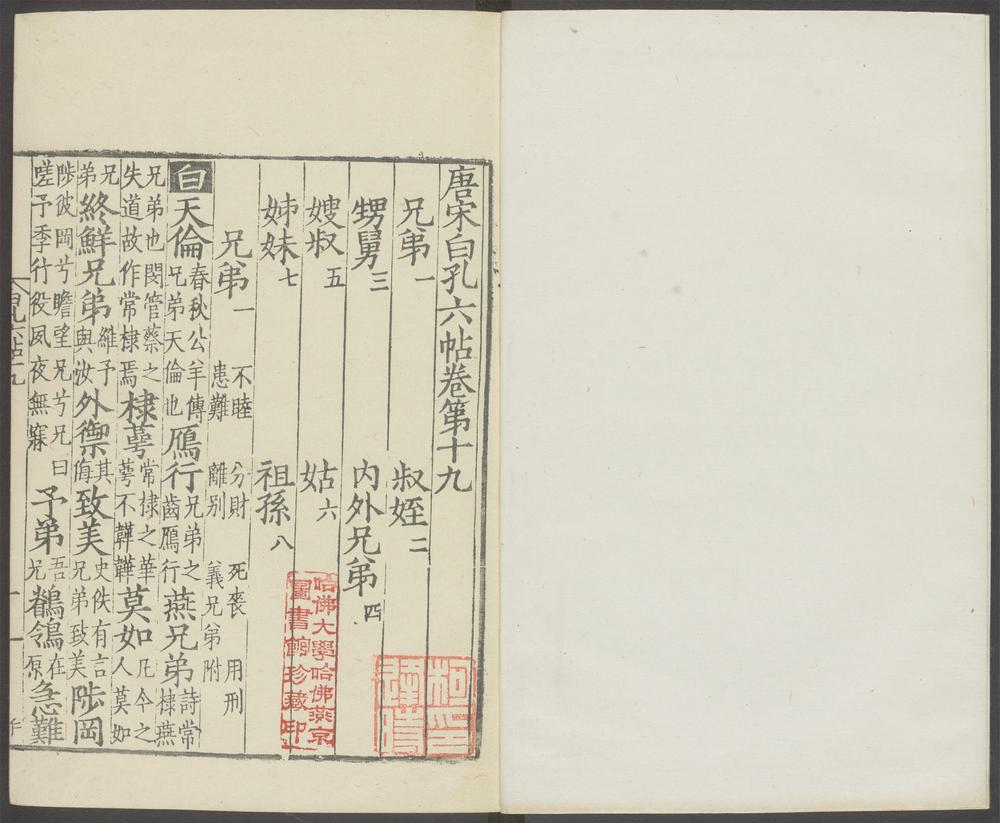 唐宋白孔六帖卷第十九
兄弟一 叔姪二
甥舅三 内外兄弟四
嫂叔五 姑六
姊妹七 祖孫八
兄弟一 不睦 患難 分財 離別 死喪 義兄弟附 用刑
白 天倫 春秋公羊傳兄弟天倫也 鴈行 兄弟之齒鴈行 燕兄弟 詩常棣燕
兄弟也閔管蔡之失道故作常棣焉 棣萼 常棣之華萼不韡韡 莫如 凡今之人莫如
兄弟 終鮮兄弟 維予與汝 外禦 其侮 致美 史佚有言兄弟致美 陟岡
陟彼岡兮瞻望兄兮兄曰嗟予季行役夙夜無寐 予弟 吾兄 鶺鴒 在原 急難
白孔六帖十九
哈佛大學哈佛燕京
圖書館珍藏印